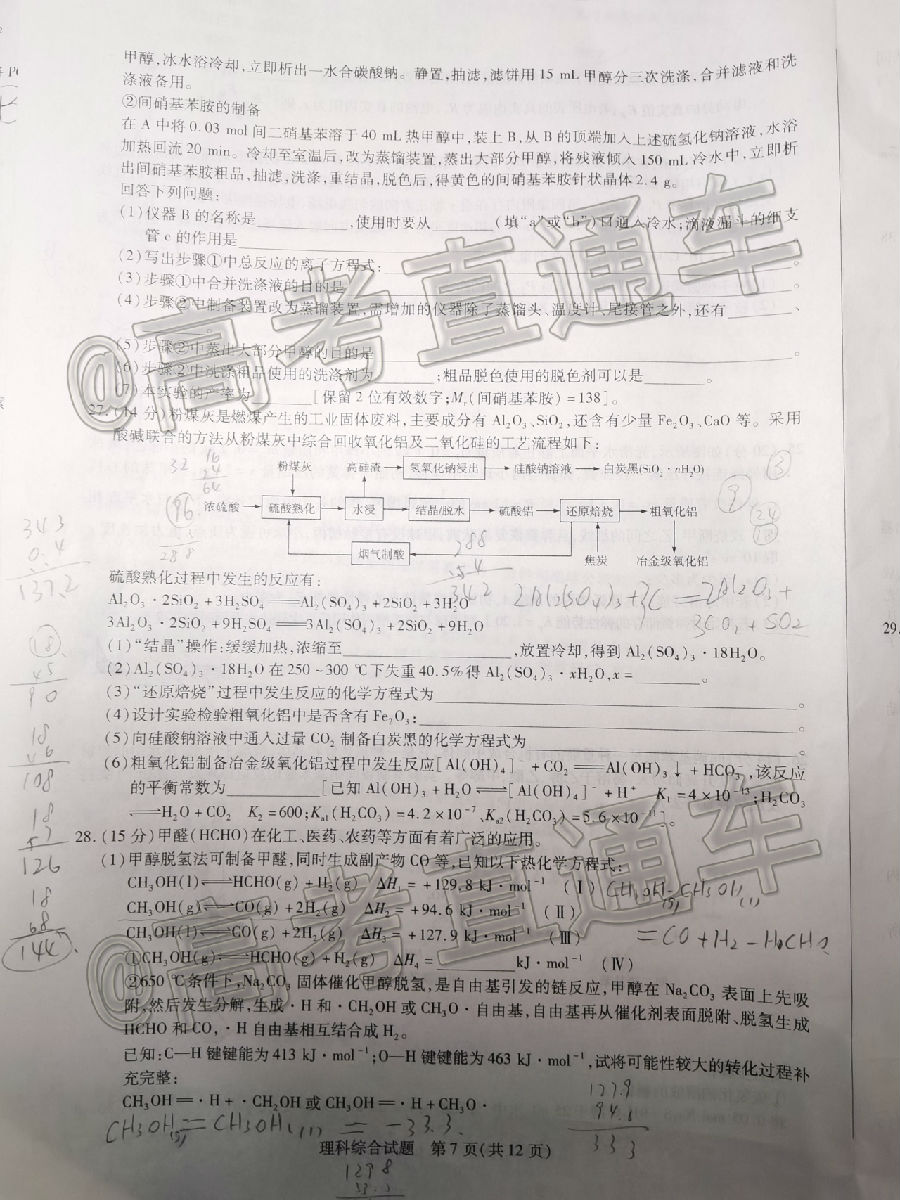 甲醇,冰水浴冷却,立即析出一水合碳酸钠。静置,抽滤,滤饼用15 mL甲醇分三次洗涤,合并滤液和洗
涤液备用。
②间硝基苯胺的制备
在A中将0.03 mol间二硝基苯溶于40 mL热甲醇中,装上B,从B的顶端加入上述硫氢化钠溶液,水浴
加热回流20 min。冷却至室温后,改为蒸馏装置,蒸出大部分甲醇,将残液倾入150 mL冷水中,立即析
出间硝基苯胺粗品,抽滤,洗涤,重结晶,脱色后,得黄色的间硝基苯胺针状晶体2.4 g。
回答下列问题:
(1)仪器B的名称是________,使用时要从________(填“a”或“b”)口通入冷水;滴液漏斗的细支
管c的作用是________。
(2)写出步骤①中总反应的离子方程式:________。
(3)步骤①中合并洗涤液的目的是________。
(4)步骤②中制备装置改为蒸馏装置,需增加的仪器除了蒸馏头、温度计、尾接管之外,还有________、
________。
(5)步骤②中蒸出大部分甲醇的目的是________。
(6)步骤②中洗涤粗品使用的洗涤剂为________;粗品脱色使用的脱色剂可以是________。
(7)本实验的产率为________[保留2位有效数字;Mr(间硝基苯胺)=138]。
27.(14分)粉煤灰是燃煤产生的工业固体废料,主要成分有Al₂O₃、SiO₂,还含有少量Fe₂O₃、CaO等。采用
酸碱联合的方法从粉煤灰中综合回收氧化铝及二氧化硅的工艺流程如下:
粉煤灰 高硅渣 氢氧化钠浸出 硅酸钠溶液 白炭黑(SiO₂·nH₂O)
浓硫酸 硫酸熟化 水浸 结晶/脱水 硫酸铝 还原焙烧 粗氧化铝
烟气制酸 焦炭 冶金级氧化铝
硫酸熟化过程中发生的反应有:
Al₂O₃·2SiO₂+3H₂SO₄══Al₂(SO₄)₃+2SiO₂+3H₂O
3Al₂O₃·2SiO₂+9H₂SO₄══3Al₂(SO₄)₃+2SiO₂+9H₂O
2Al₂(SO₄)₃+3C=2Al₂O₃+
3CO₂+SO₂
(1)“结晶”操作:缓缓加热,浓缩至________,放置冷却,得到Al₂(SO₄)₃·18H₂O。
(2)Al₂(SO₄)₃·18H₂O在250~300 ℃下失重40.5%得Al₂(SO₄)₃·xH₂O,x=________。
(3)“还原焙烧”过程中发生反应的化学方程式为________。
(4)设计实验检验粗氧化铝中是否含有Fe₂O₃:________。
(5)向硅酸钠溶液中通入过量CO₂制备白炭黑的化学方程式为________。
(6)粗氧化铝制备冶金级氧化铝过程中发生反应[Al(OH)₄]⁻+CO₂══Al(OH)₃↓+HCO₃⁻,该反应
的平衡常数为________[已知Al(OH)₃+H₂O⇌[Al(OH)₄]⁻+H⁺ K₁=4×10⁻¹³;H₂CO₃
⇌H₂O+CO₂ K₂=600;Ka1(H₂CO₃)=4.2×10⁻⁷、Ka2(H₂CO₃)=5.6×10⁻¹¹]。
28.(15分)甲醛(HCHO)在化工、医药、农药等方面有着广泛的应用。
(1)甲醇脱氢法可制备甲醛,同时生成副产物CO等,已知以下热化学方程式:
CH₃OH(l)⇌HCHO(g)+H₂(g) ΔH₁=+129.8 kJ·mol⁻¹ (Ⅰ)
CH₃OH(g)⇌CO(g)+2H₂(g) ΔH₂=+94.6 kJ·mol⁻¹ (Ⅱ)
CH₃OH(l)⇌CO(g)+2H₂(g) ΔH₃=+127.9 kJ·mol⁻¹ (Ⅲ)
①CH₃OH(g)⇌HCHO(g)+H₂(g) ΔH₄=________kJ·mol⁻¹ (Ⅳ)
②650 ℃条件下,Na₂CO₃固体催化甲醇脱氢,是自由基引发的链反应,甲醇在Na₂CO₃表面上先吸
附,然后发生分解,生成·H和·CH₂OH或CH₃O·自由基,自由基再从催化剂表面脱附、脱氢生成
HCHO和CO,·H自由基相互结合成H₂。
已知:C—H键键能为413 kJ·mol⁻¹;O—H键键能为463 kJ·mol⁻¹,试将可能性较大的转化过程补
充完整:
CH₃OH══·H+·CH₂OH或CH₃OH══·H+CH₃O·
理科综合试题 第7页(共12页)
343
0.4
137.2
18
45
90
18
×6
108
18
×7
126
18
68
144
32
16
24
64
96
288
288
54
342
127.9
94.6
333
129.8
29.
@高考直通车
@高考直通车